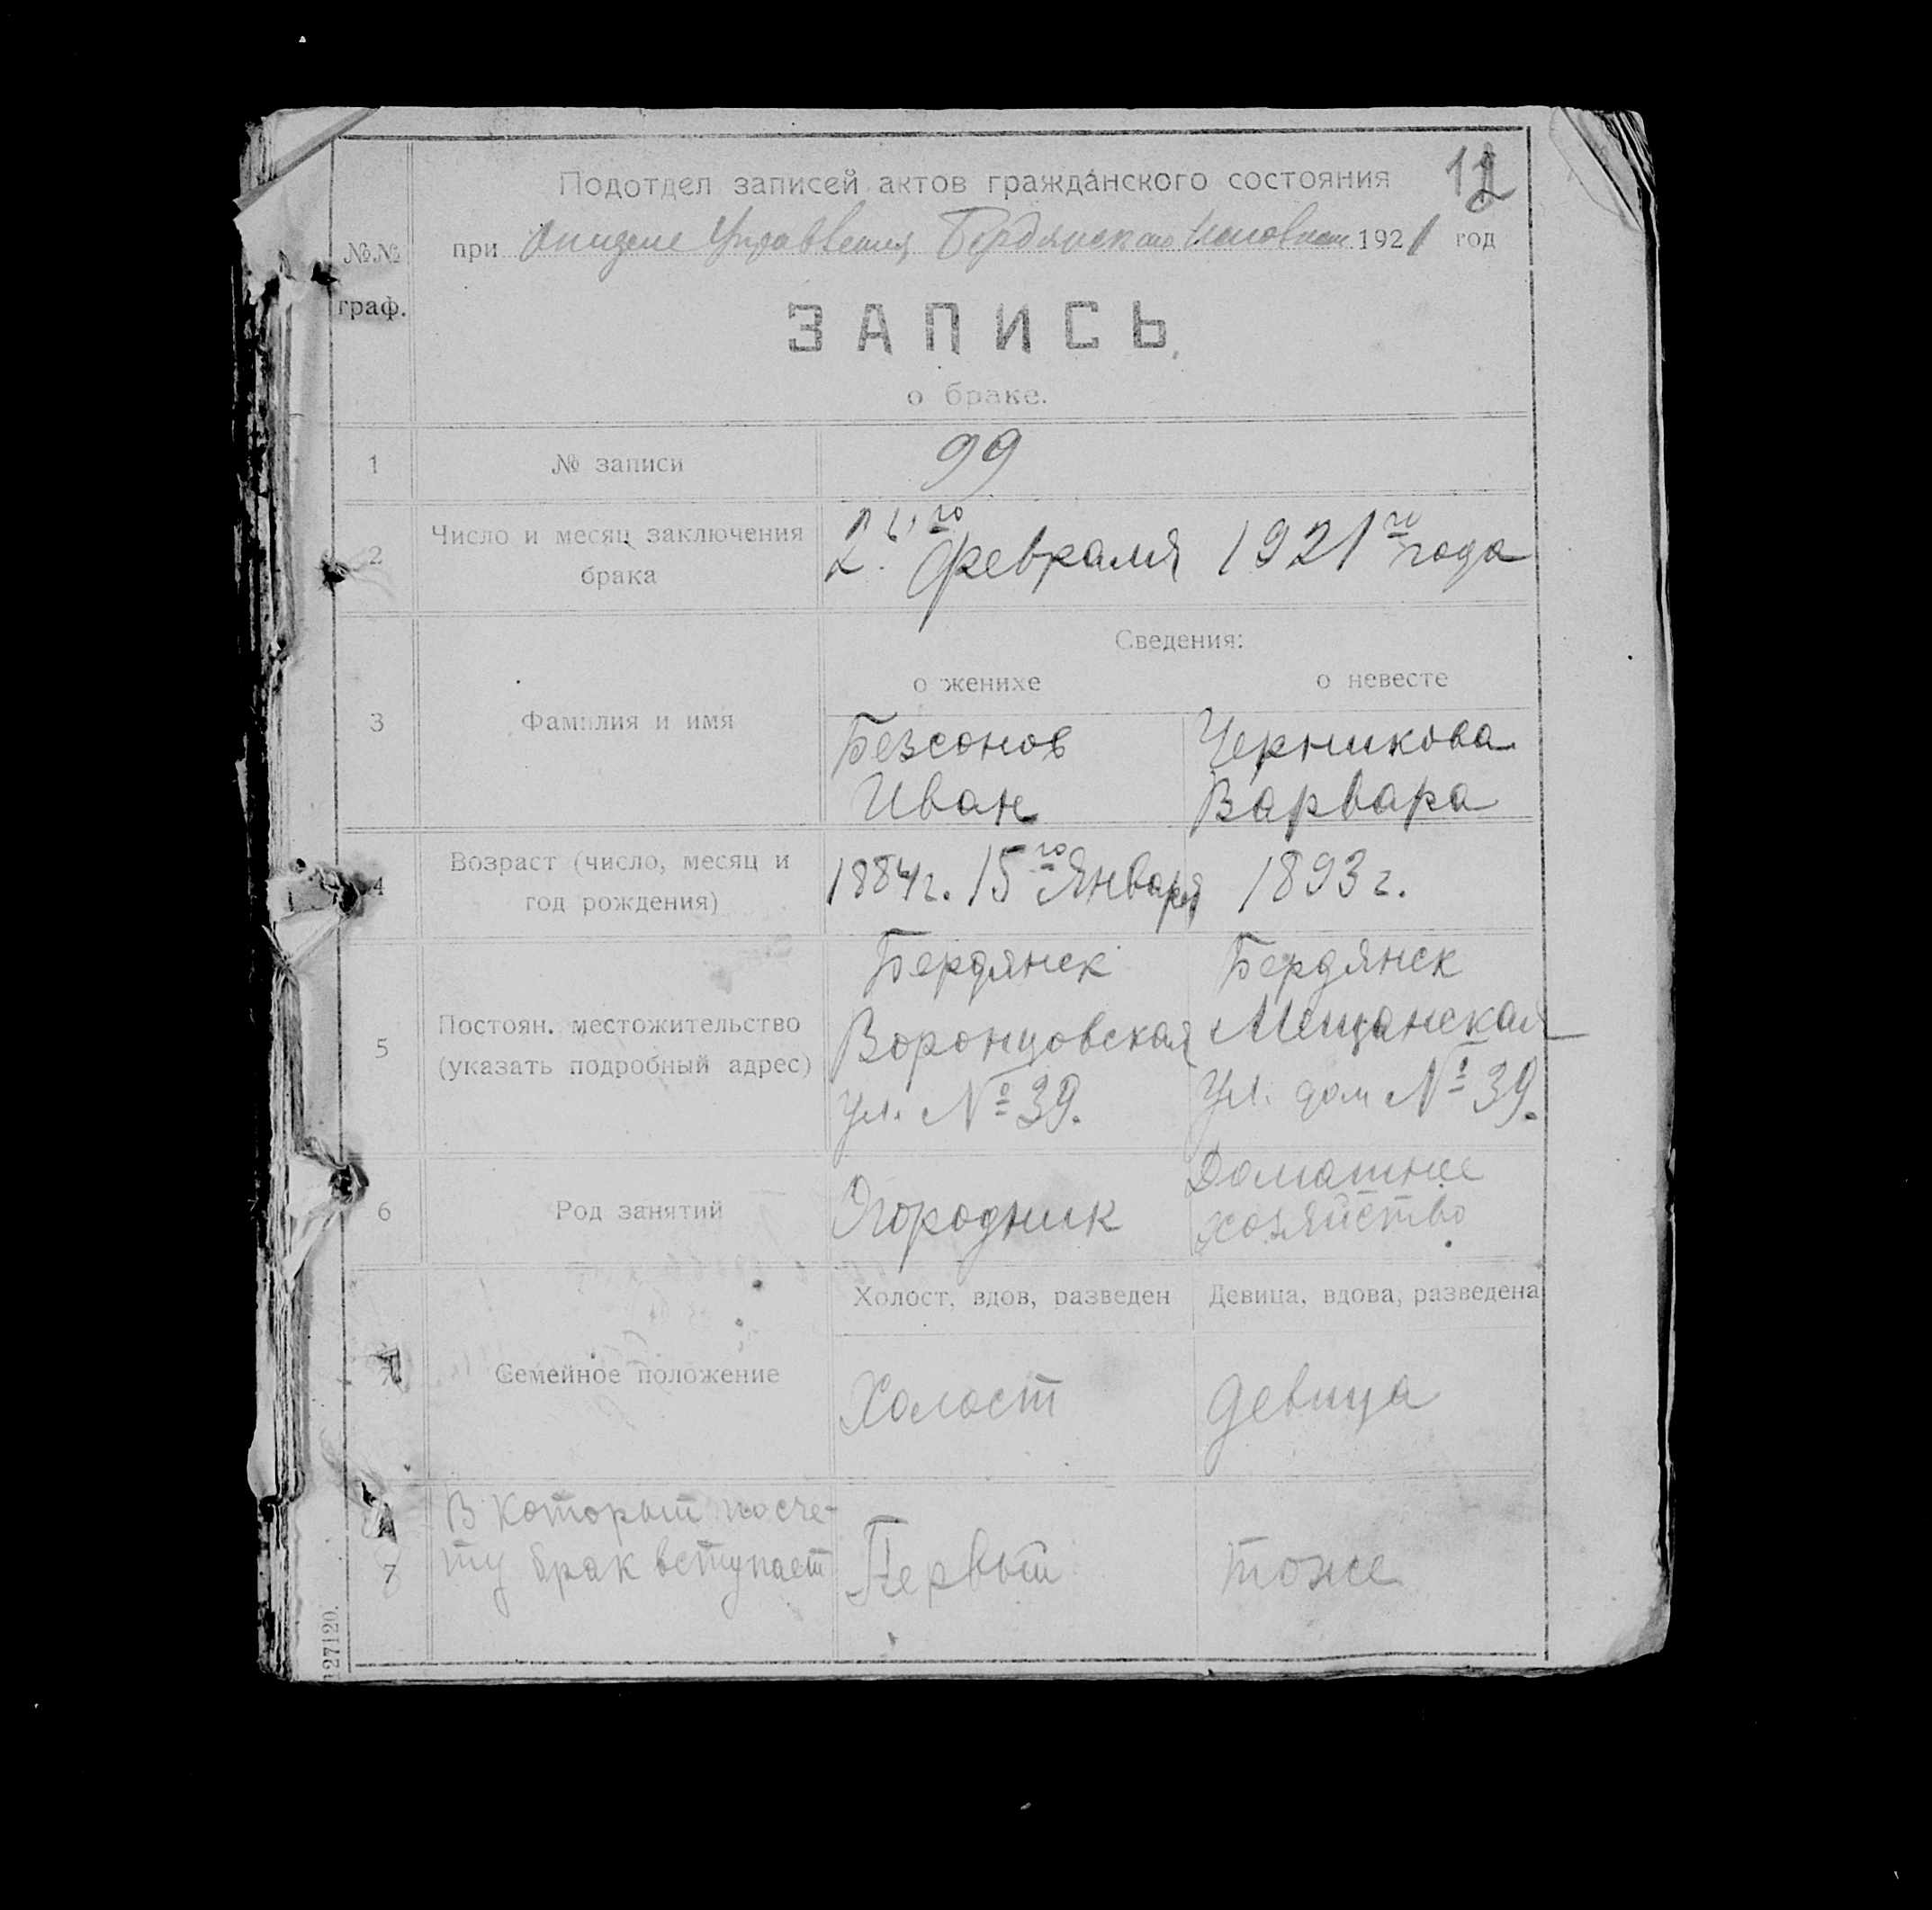 Подотдел записей актов гражданского состояния 12
№№ при отделе Управления Бердянского 1921 год
граф.
ЗАПИСЬ
о браке.
1 № записи 99
2 Число и месяц заключения брака 2го февраля 1921го года
Сведения:
о женихе о невесте
3 Фамилия и имя Безсонов Черникова
Иван Варвара
4 Возраст (число, месяц и 1884г. 15го Января 1893г.
год рождения)
Бердянск Бердянск
5 Постоян. местожительство Воронцовская Мещанская
(указать подробный адрес) ул. № 39. ул. дом № 39.
6 Род занятий Огородник Домашнее
хозяйство
Холост, вдов, разведен Девица, вдова, разведена
7 Семейное положение Холост девица
В который посче-
7 ту брак вступает Первый тоже
127120.